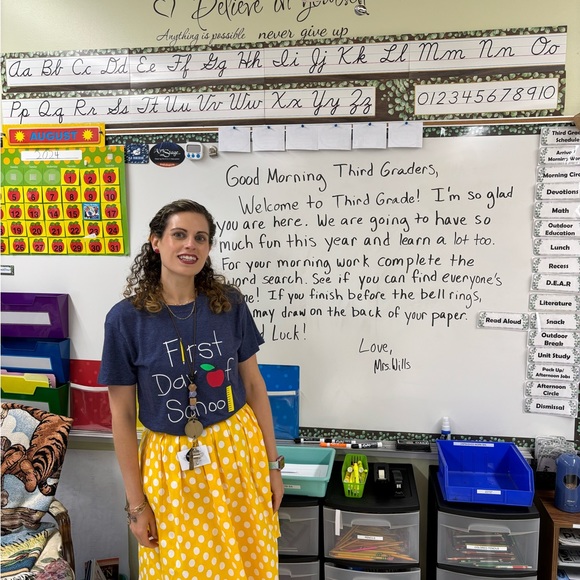 Believe in yourself
Anything is possible never give up
Aa Bb Cc Dd Ee Ff Gg Hh Ii Jj Kk Ll Mm Nn Oo
Pp Qq Rr Ss Tt Uu Vv Ww Xx Yy Zz 0 1 2 3 4 5 6 7 8 9 10
AUGUST
2024
Good Morning Third Graders,
Welcome to Third Grade! I'm so glad
you are here. We are going to have so
much fun this year and learn a lot too.
For your morning work complete the
word search. See if you can find everyone's
! If you finish before the bell rings,
may draw on the back of your paper.
Luck!
Love,
Mrs. Wills
First
Day of
School
Third Grade
Schedule
Arrival
Morning Work
Morning Circle
Devotions
Math
Outdoor
Education
Lunch
Recess
D.E.A.R
Literature
Read Aloud
Snack
Outdoor
Break
Unit Study
Pack Up/
Afternoon Jobs
Afternoon
Circle
Dismissal